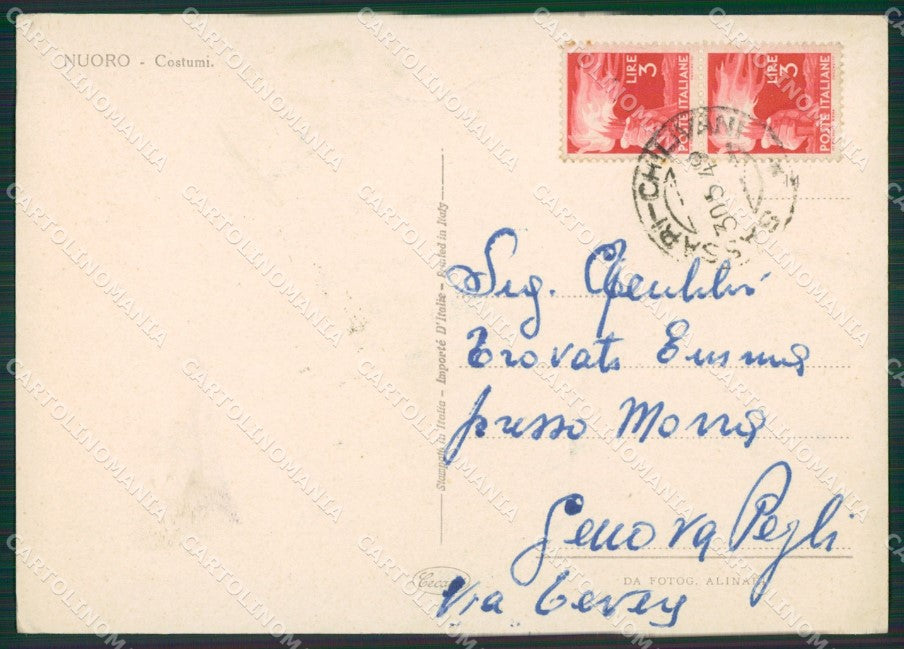 NUORO - Costumi.
LIRE 3
POSTE ITALIANE
LIRE 3
POSTE ITALIANE
SASSARI-CHILIVANI
30.5.49
Stampato in Italia - Importé D'Italie - Printed in Italy
Sig.
Trovato Emma
presso Morra
Genova Pegli
DA FOTOG. ALINARI
Via
CARTOLINOMANIA